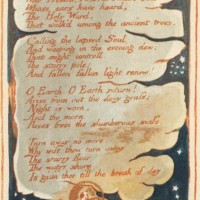 Whose ears have heard,
The Holy Word,
That walk'd among the ancient trees.
Calling the lapsed Soul
And weeping in the evening dew:
That might controll
The starry pole;
And fallen fallen light renew!
O Earth O Earth return!
Arise from out the dewy grass;
Night is worn,
And the morn
Rises from the slumberous mass.
Turn away no more:
Why wilt thou turn away
The starry floor
The watry shore
Is giv'n thee till the break of day.